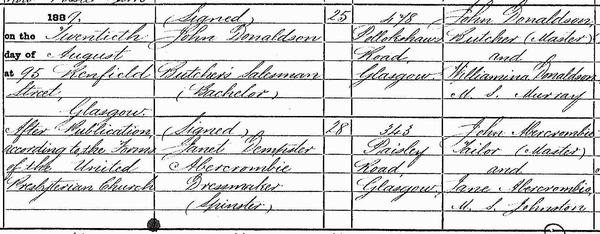 1887. (Signed) 25 478 John Donaldson,
on the Twentieth John Donaldson Pollokshaws Butcher (Master)
day of August Road, and
at 95 Renfield Butcher's Salesman Glasgow. Williamina Donaldson
Street, (Bachelor) M. S. Murray
Glasgow.
After Publication, (Signed) 28 343 John Abercrombie
according to the Forms Janet Dempster Paisley Tailor (Master)
of the United Abercrombie Road, and
Presbyterian Church Dressmaker Glasgow, Jane Abercrombie,
(Spinster) M. S. Johnston